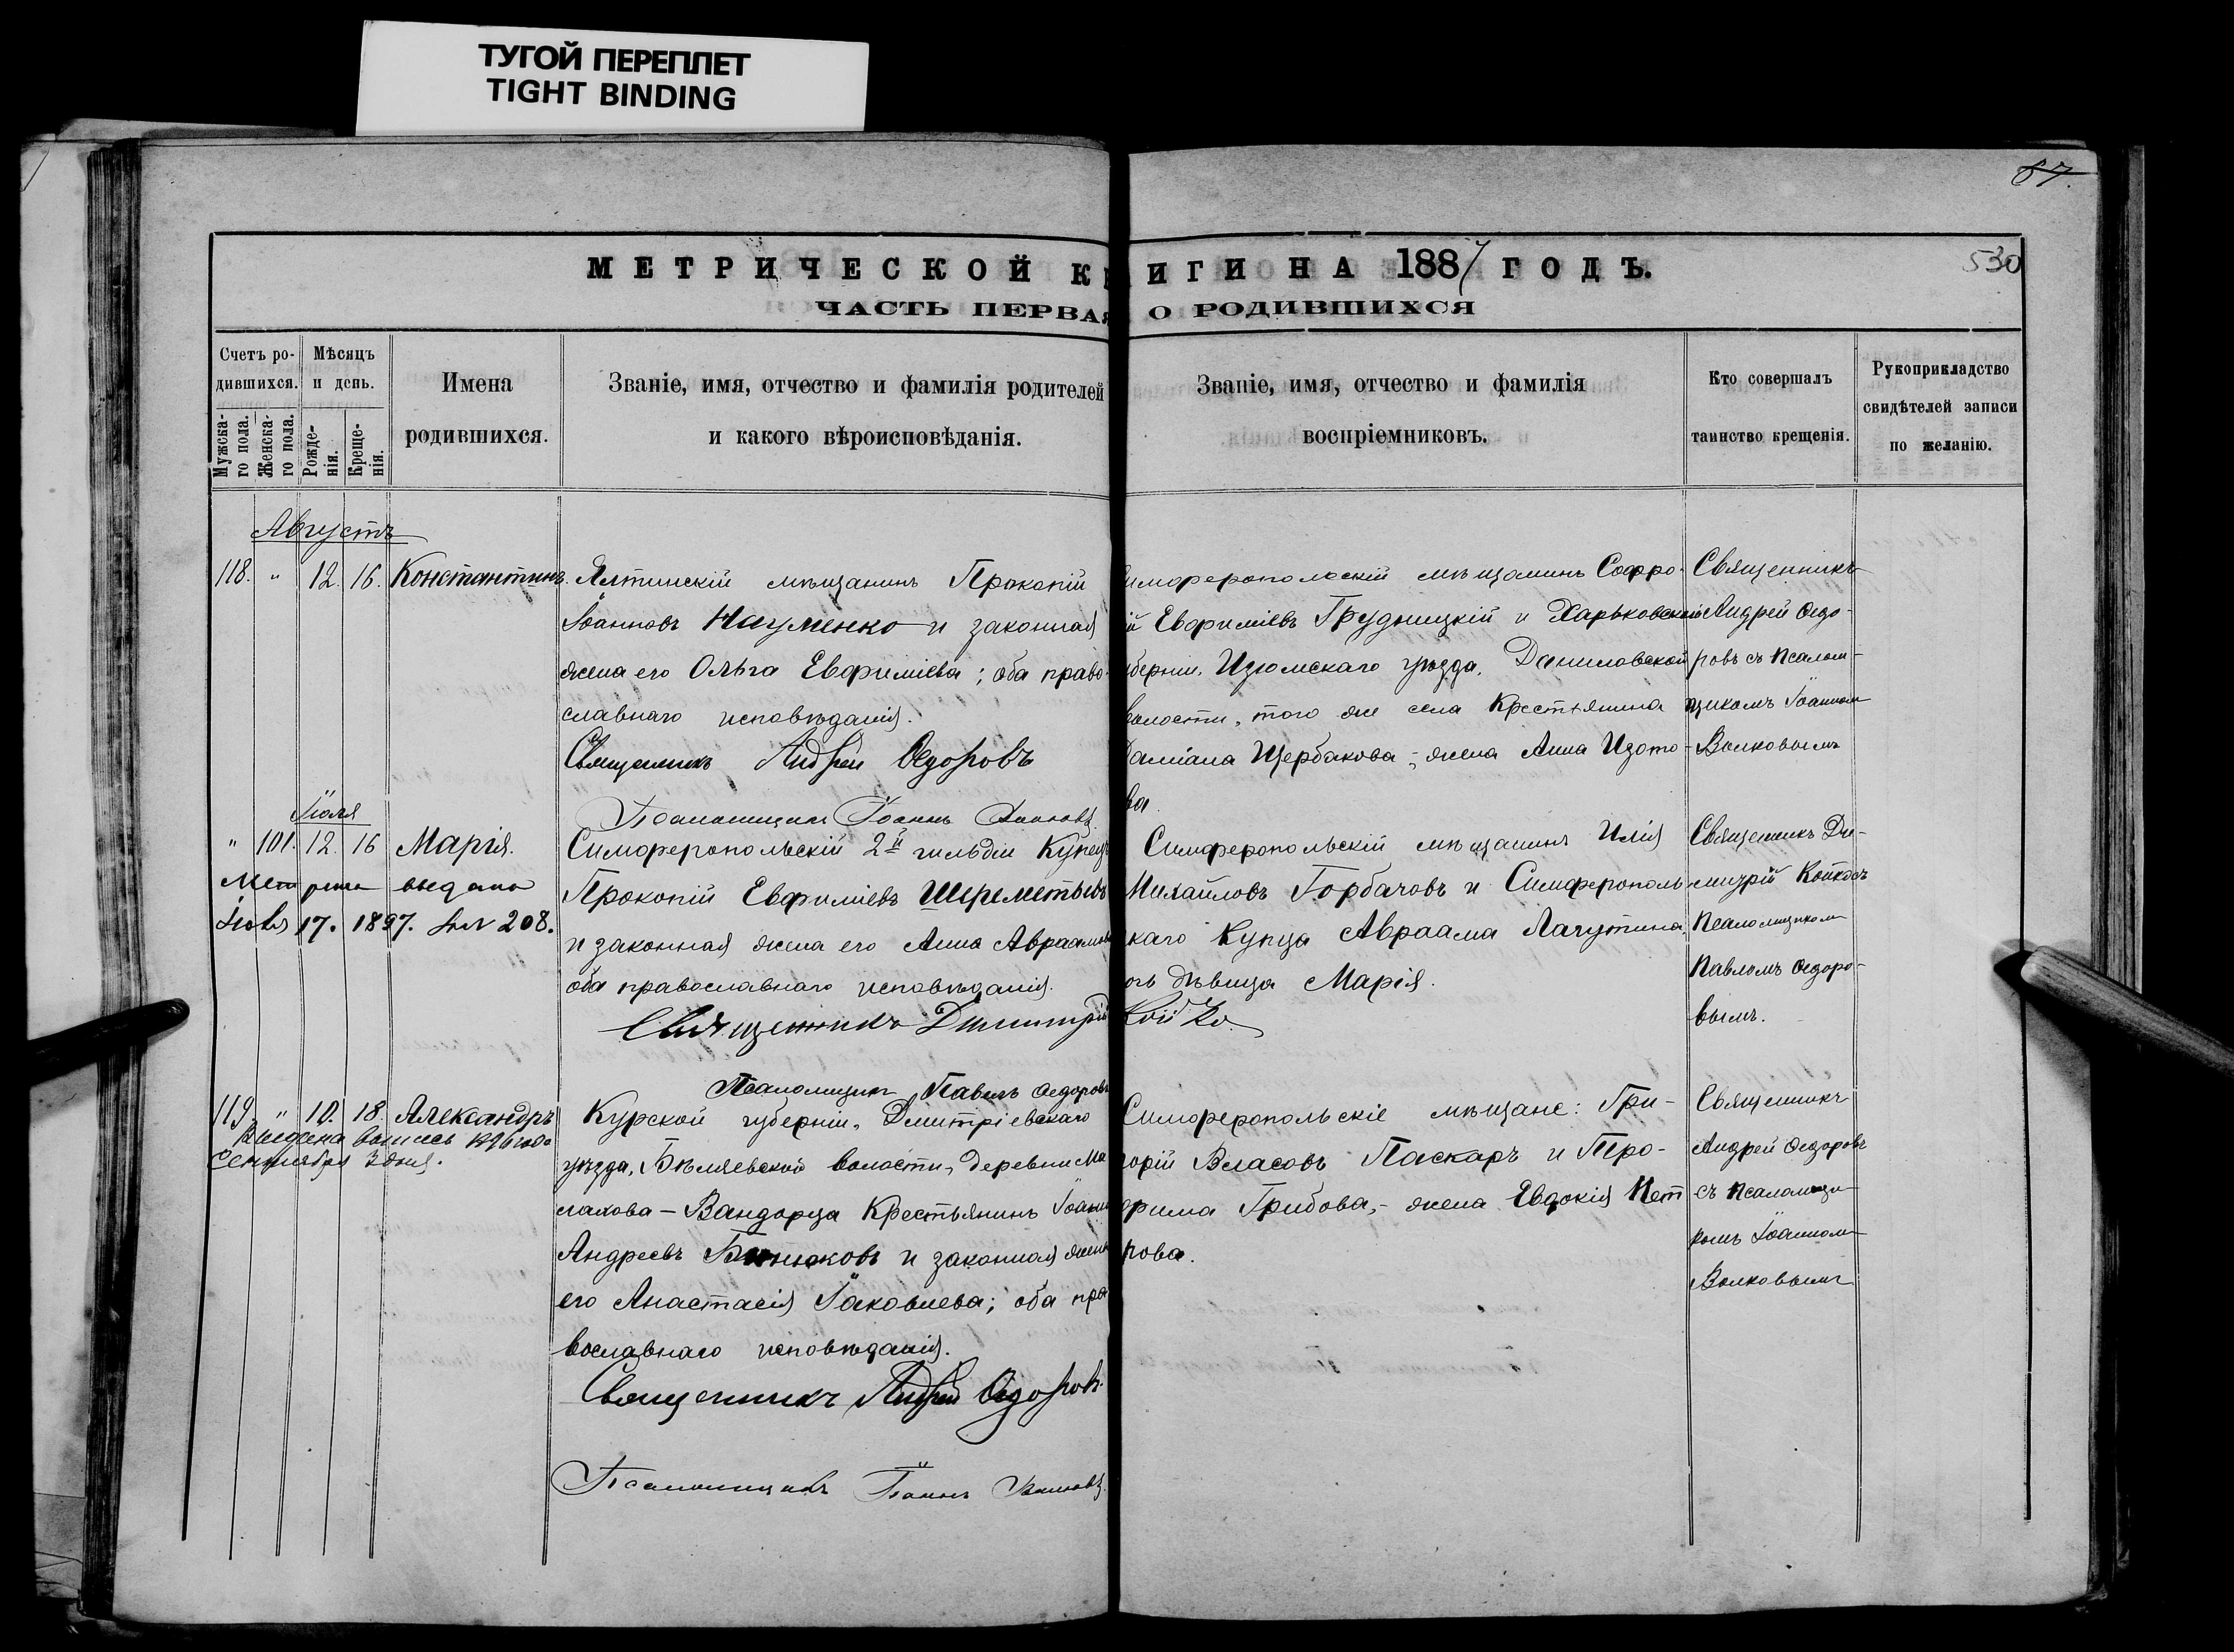 ТУГОЙ ПЕРЕПЛЕТ
TIGHT BINDING
87.
530
МЕТРИЧЕСКОЙ КНИГИ НА 1887 ГОДЪ.
ЧАСТЬ ПЕРВАЯ О РОДИВШИХСЯ
Счетъ ро-
дившихся.
Мужска-
го пола.
Женска-
го пола.
Мѣсяцъ
и день.
Рожде-
нія.
Креще-
нія.
Имена
родившихся.
Званіе, имя, отчество и фамилія родителей
и какого вѣроисповѣданія.
Званіе, имя, отчество и фамилія
воспріемниковъ.
Кто совершалъ
таинство крещенія.
Рукоприкладство
свидѣтелей записи
по желанію.
Августъ
118. " 12. 16. Константинъ.
Ялтинскій мѣщанинъ Прокопій
Іоанновъ Науменко и законная
жена его Ольга Евфиміева; оба право-
славнаго исповѣданія.
Священникъ Андрей Ѳедоровъ
Псаломщикъ Іоаннъ Волковъ
Симферопольскій мѣщанинъ Софро-
ій Евфиміевъ Грудницкій и Харьковской
губерніи, Изюмскаго уѣзда, Даниловской
волости, того же села Крестьянина
Даміана Щербакова, - жена Анна Изото-
ва.
Священникъ
Андрей Ѳедо-
ровъ съ псалом-
щикомъ Іоанномъ
Волковымъ
Іюля
" 101. 12. 16 Марія.
Метрика выдана
17. 1897. № 208.
Симферопольскій 2й гильдіи Купецъ
Прокопій Евфиміевъ Шереметьевъ
и законная жена его Анна Авраамова
оба православнаго исповѣданія.
Священникъ Димитрій Койко
Псаломщикъ Павелъ Ѳедоровъ
Симферопольскій мѣщанинъ Илія
Михайловъ Горбачовъ и Симферополь-
скаго Купца Авраама Лагутина,
дочь дѣвица Марія.
Священникъ Ди-
митрій Койко съ
Псаломщикомъ
Павломъ Ѳедоро-
вымъ.
119. " 10. 18. Александръ
Выдана выпись 1896 года
Сентября 3 дня.
Курской губерніи, Дмитріевскаго
уѣзда, Бѣляевской волости, деревни Ма
лахова - Вандарца Крестьянинъ Іоаннъ
Андреевъ и законная жена
его Анастасія Іаковлева; оба пра
вославнаго исповѣданія.
Священникъ Андрей Ѳедоровъ.
Псаломщикъ Іоаннъ Волковъ.
Симферопольскіе мѣщане: Гри-
горій Власовъ Паскаръ и Тро-
фима Грибова, - жена Евдокія Пет
рова.
Священникъ
Андрей Ѳедоровъ
съ псаломщи
комъ Іоанномъ
Волковымъ